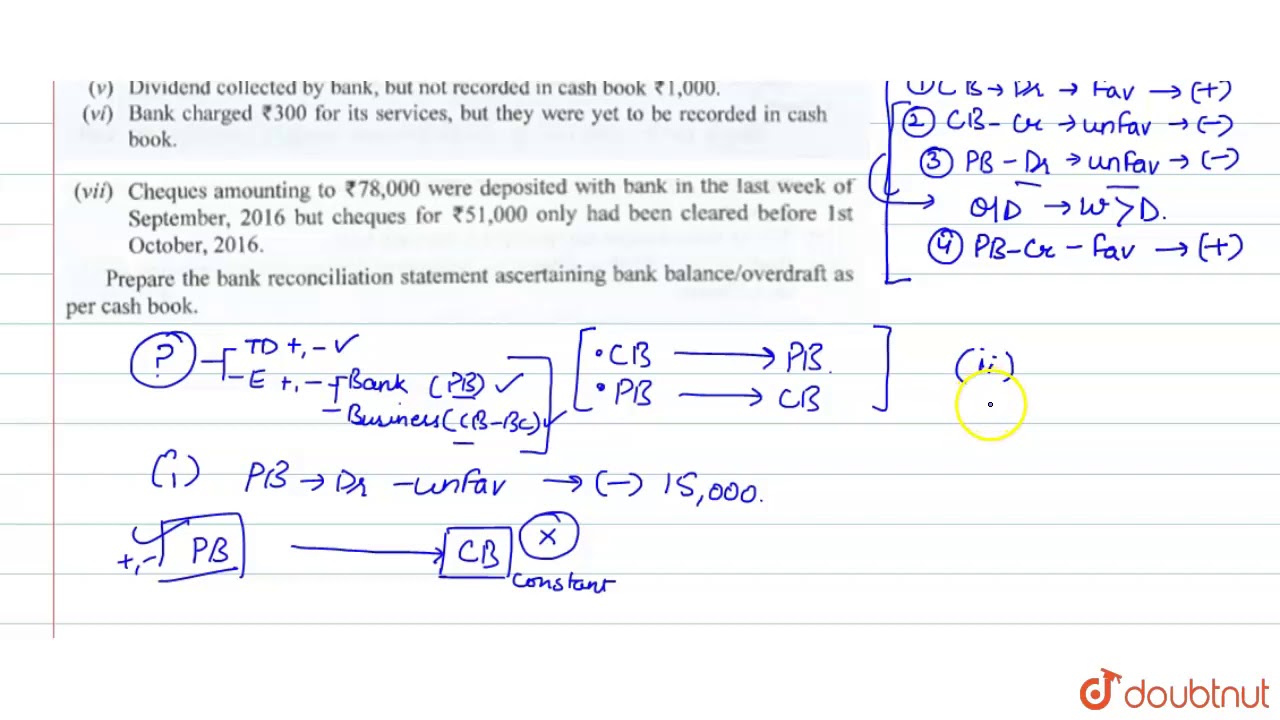 (v) Dividend collected by bank, but not recorded in cash book ₹1,000.
(vi) Bank charged ₹300 for its services, but they were yet to be recorded in cash
book.
(vii) Cheques amounting to ₹78,000 were deposited with bank in the last week of
September, 2016 but cheques for ₹51,000 only had been cleared before 1st
October, 2016.
Prepare the bank reconciliation statement ascertaining bank balance/overdraft as
per cash book.
① CB → Dr → Fav → (+)
② CB - Cr → unFav → (-)
③ PB - Dr → unfav → (-)
O/D → W > D.
④ PB - Cr - Fav → (+)
?
TD +, - ✓
E +, - Bank (PB) ✓
Business (CB-BC) ✓
• CB → PB.
• PB → CB
(ii)
(i) PB → Dr - unFav → (-) 15,000.
+, - PB → CB X
constant
doubtnut